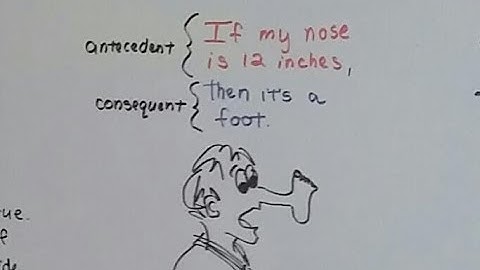 antecedent { If my nose
is 12 inches,
consequent { then it's a
foot.
ue.